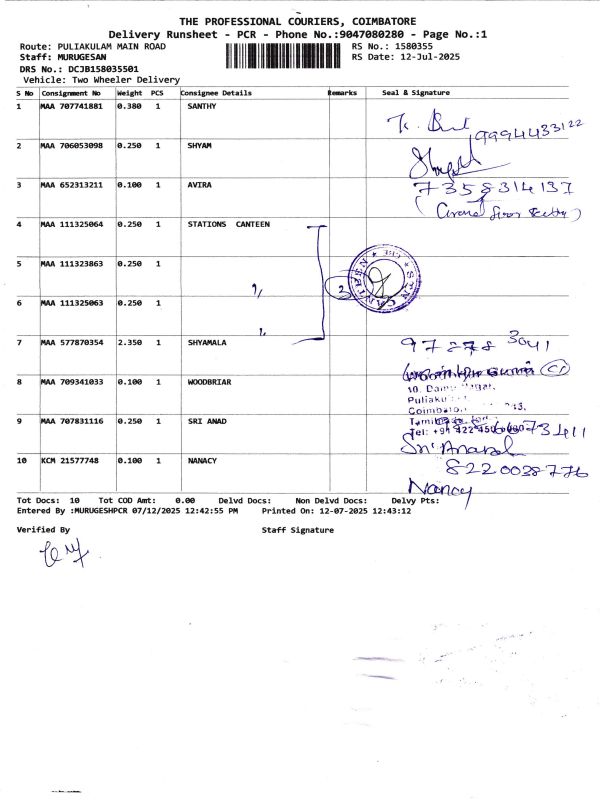 THE PROFESSIONAL COURIERS, COIMBATORE
Delivery Runsheet - PCR - Phone No.:9047080280 - Page No.:1
Route: PULIAKULAM MAIN ROAD
RS No.: 1580355
Staff: MURUGESAN
RS Date: 12-Jul-2025
DRS No.: DCJB158035501
Vehicle: Two Wheeler Delivery
S No Consignment No Weight PCS Consignee Details Remarks Seal & Signature
1 MAA 707741881 0.380 1 SANTHY
9994433122
2 MAA 706053098 0.250 1 SHYAM
3 MAA 652313211 0.100 1 AVIRA
7358314137
4 MAA 111325064 0.250 1 STATIONS CANTEEN
5 MAA 111323863 0.250 1
2
6 MAA 111325063 0.250 1
7 MAA 577870354 2.350 1 SHYAMALA
97878 3041
8 MAA 709341033 0.100 1 WOODBRIAR
Puliaku
Coimbato
9 MAA 707831116 0.250 1 SRI ANAD
Tel: +91 422 450
Sri Anand
10 KCM 21577748 0.100 1 NANACY
8220038776
Nancy
Tot Docs: 10 Tot COD Amt: 0.00 Delvd Docs: Non Delvd Docs: Delvy Pts:
Entered By :MURUGESHPCR 07/12/2025 12:42:55 PM Printed On: 12-07-2025 12:43:12
Verified By Staff Signature